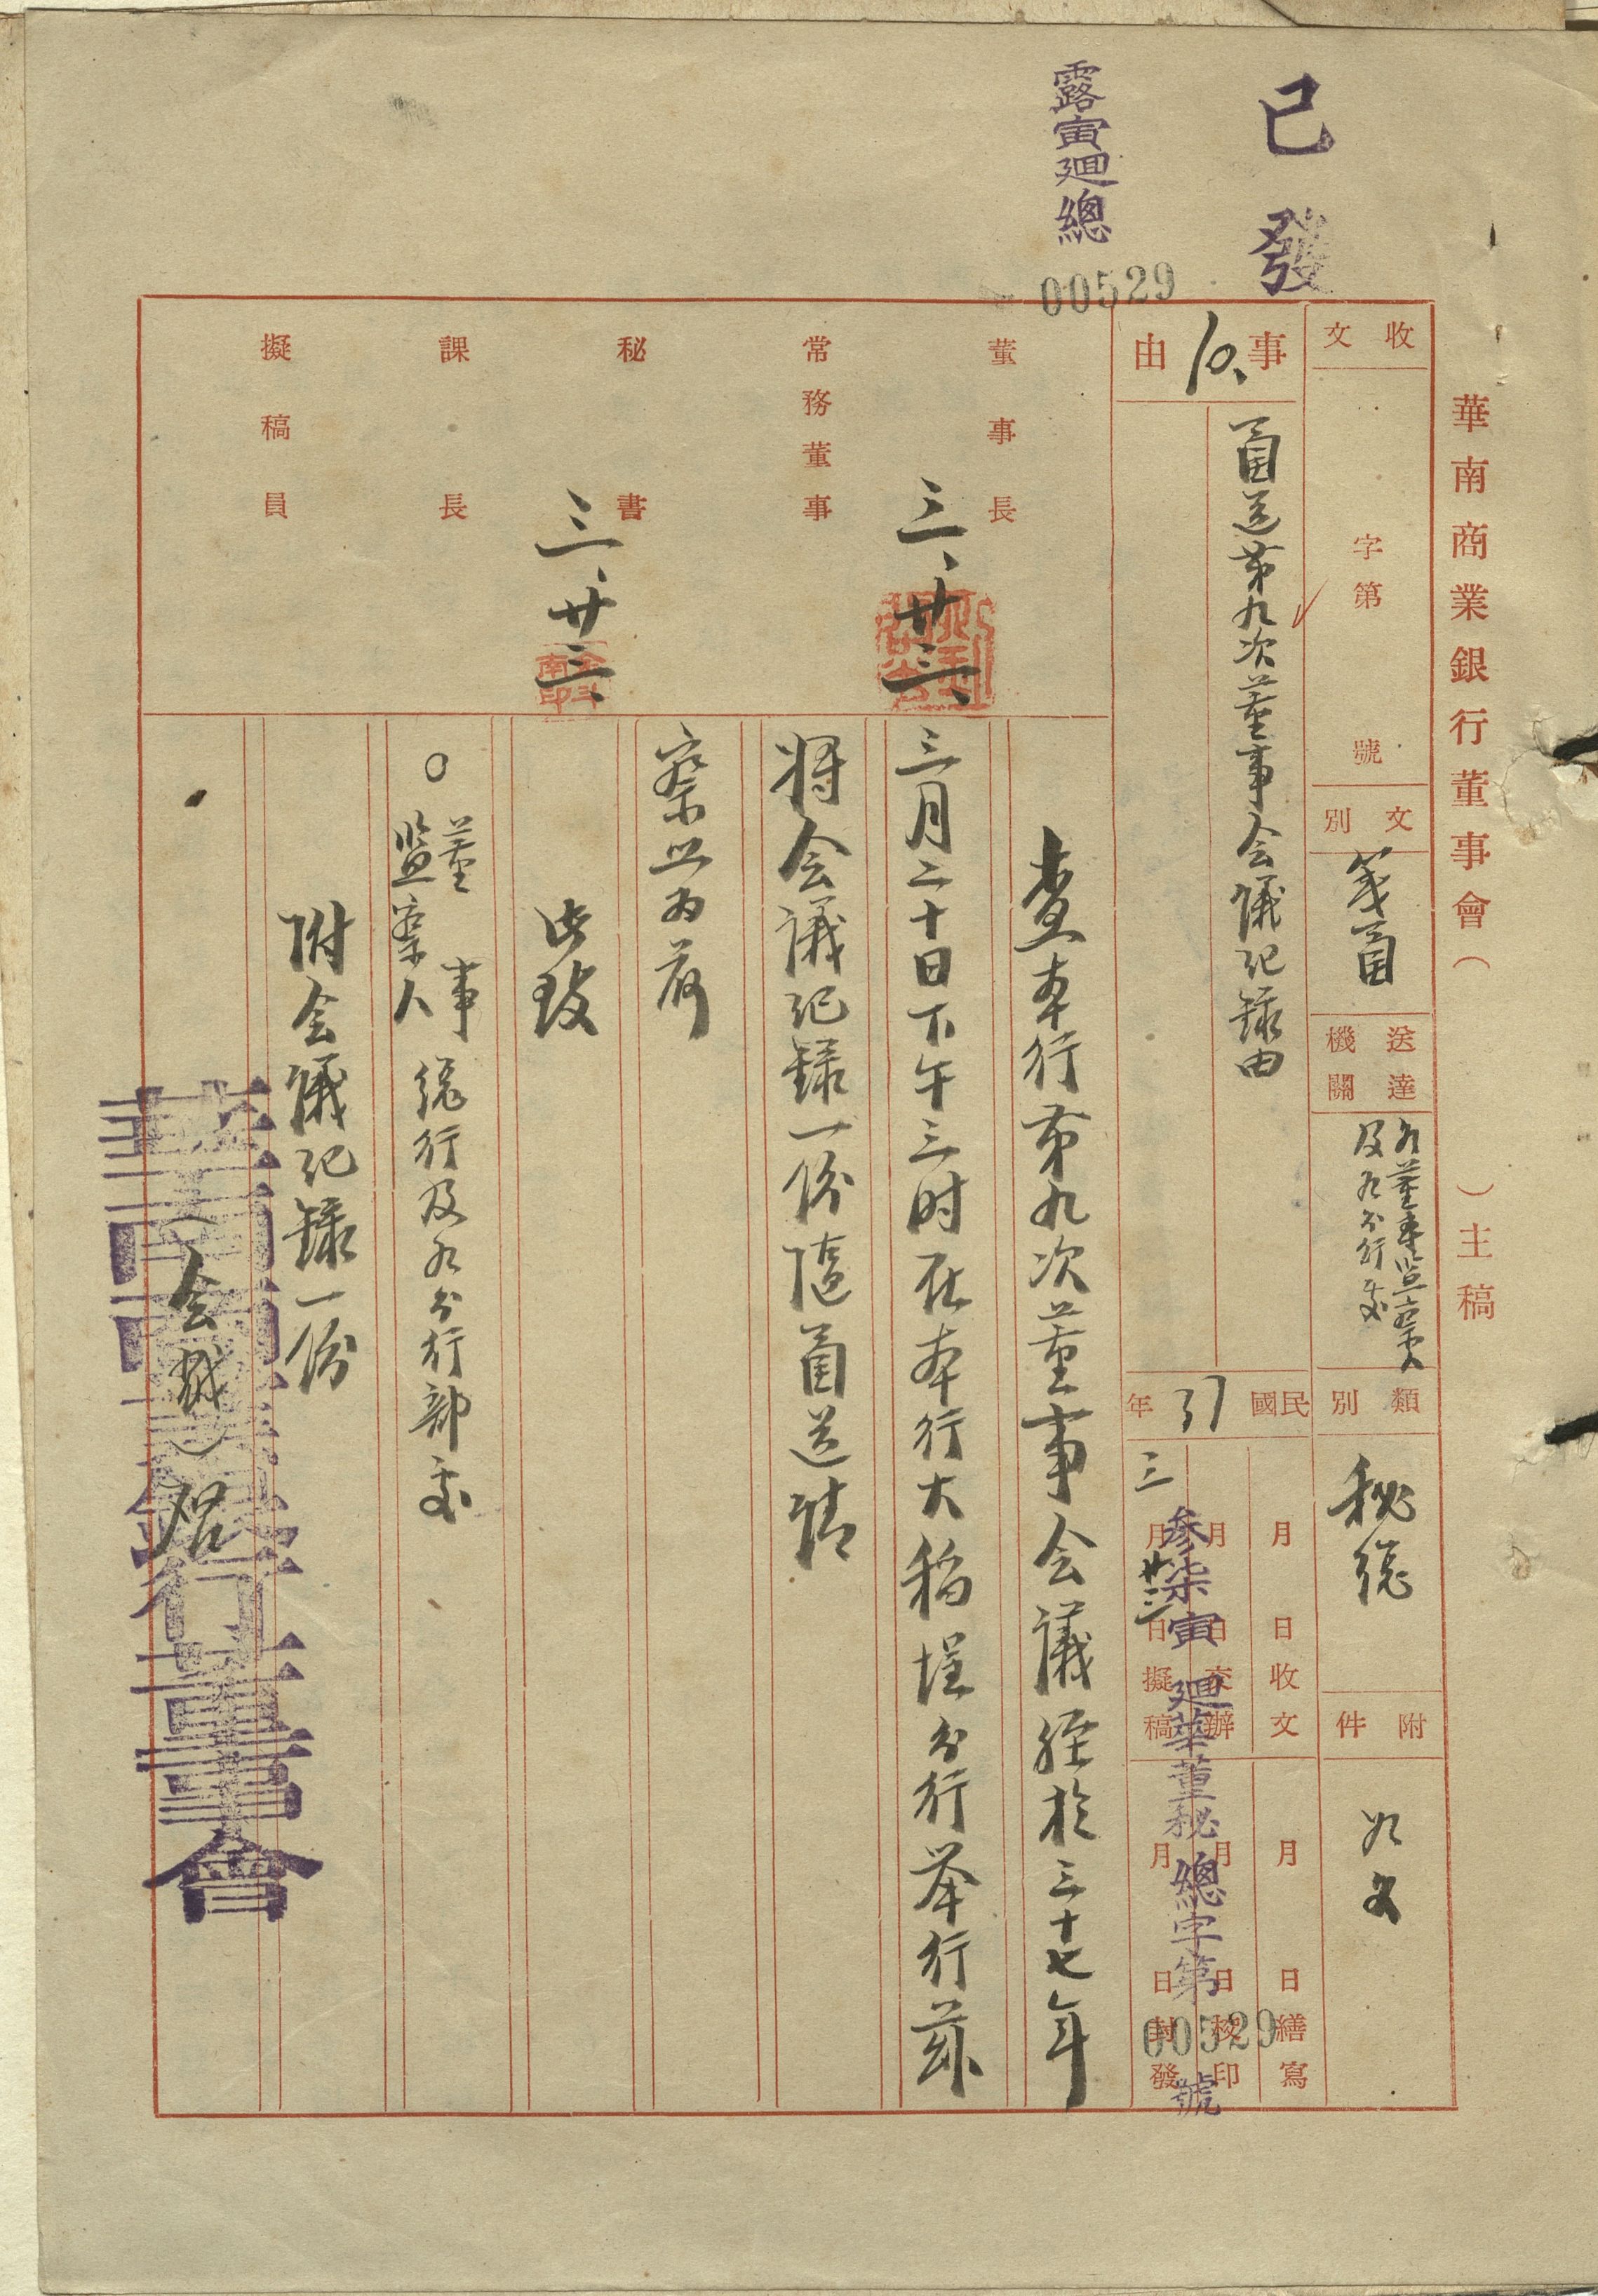 已發
露寅廻總
00529
華南商業銀行董事會（　　）主稿
收文
字第　號
文別
箋函
送達機關
各董事監察人
及各分行部
類別
秘總
附件
如文
事由
10、
函送第九次董事会議記録由
民國37年
月　日收文
月　日交辦
三月廿三日擬稿
月　日繕寫
月　日校印
月　日封發
參柒寅廻華董秘總字第00529號
董事長
三、廿三、
常務董事
秘書
三、廿三、
課長
擬稿員
查本行第九次董事会議経於三十七年
三月二十日下午三时在本行大稻埕分行举行茲
将会議記録一份隨函送請
察照為荷
此致
○董事
監察人
總行及各分行部
附会議記録一份
（会戳）啓
華南商業銀行董事會